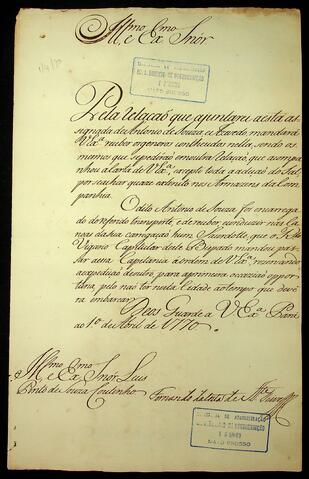 Illmo. e Exmo. Snór
Pela relação que apuntarei a esta as
signada de Antonio de Souza e Azevedo mandará
V Exa. receber os generos contheudos nella, sendo os
mesmos que se pedirão em outra relação, que acompa
nhou a Carta de V Exa., excepto toda a adição do Sal,
por se achar quaze extincto nos Armazens da Com
panhia.
O dito Antonio de Souza foi encarrega
do do referido transporte, e de receber, e conduzir nas Ca
noas da sua
Vigario Capitular deste Bispado mandou pas
sar a essa Capitania á ordem de V Exa.,
a expedição de outro, para a primeira occazião oppor
tuna, pelo não ter nesta Cidade ao tempo que deve
ria embarcar.
Deos Guarde a V Exa. Pará
ao 1º de Abril de 1770.
Illmo. e Exmo. Snór Luis
Pinto de Souza Coutinho
Fernando da Costa de
MATO GROSSO
MATO GROSSO